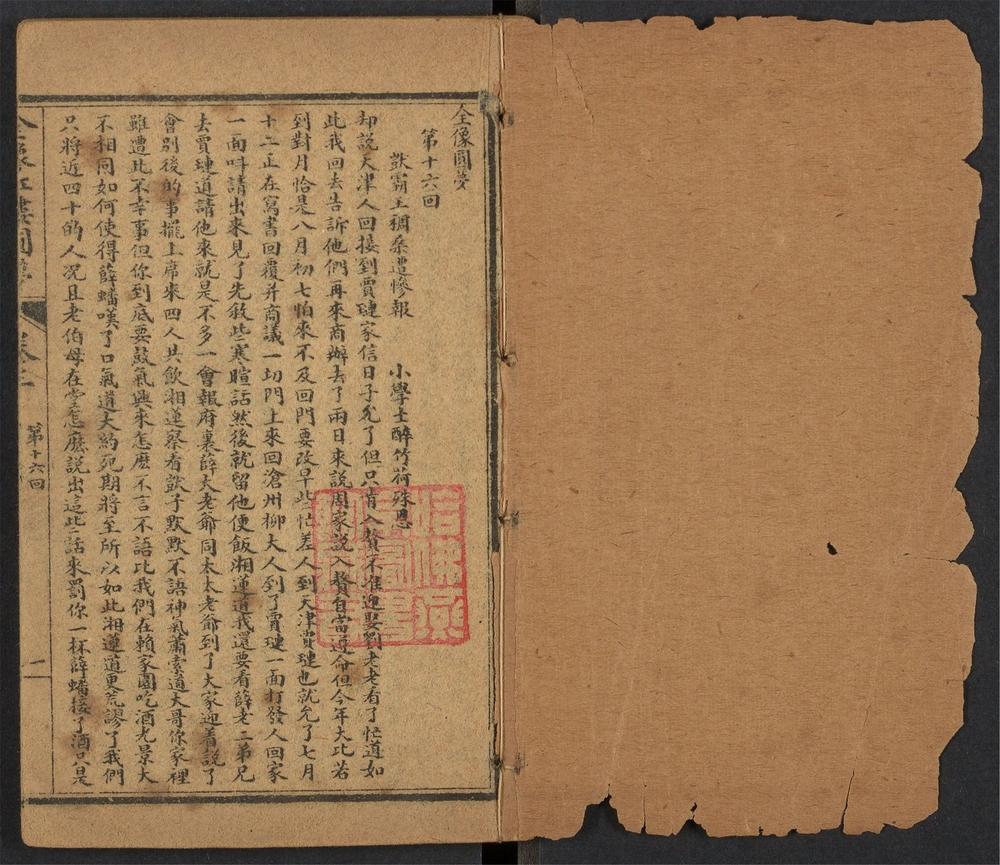 全像圓夢
第十六回
獃霸王稠桑遭慘報 小學士醉竹荷殊恩
却説天津人回接到賈璉家信日子允了但只肯入贅不准迎娶劉老老看了忙道如
此我回去告訴他們再來商辦去了兩日來説周家説入贅自當遵命但今年大比若
到對月恰是八月初七怕來不及回門要改早些忙差人到天津賈璉也就允了七月
十二正在寫書回覆并商議一切門上來回滄州柳大人到了賈璉一面打發人回家
一面呌請出來見了先敘些寒暄話然後就留他便飯湘蓮道我還要看薛老二弟兄
去賈璉道請他來就是不多一會報府裏薛大老爺同太太老爺到了大家迎着説了
會别後的事擺上席來四人共飲湘蓮察看獃子默默不語神氣蕭索道大哥你家裡
雖遭此不幸事但你到底要鼓氣興來怎麽不言不語比我們在賴家園吃酒光景大
不相同如何使得薛蟠嘆了口氣道大約死期將至所以如此湘蓮道更荒謬了我們
只將近四十的人况且老伯母在堂怎麽説出這些話來罰你一杯薛蟠接了酒只是
第十六回
一